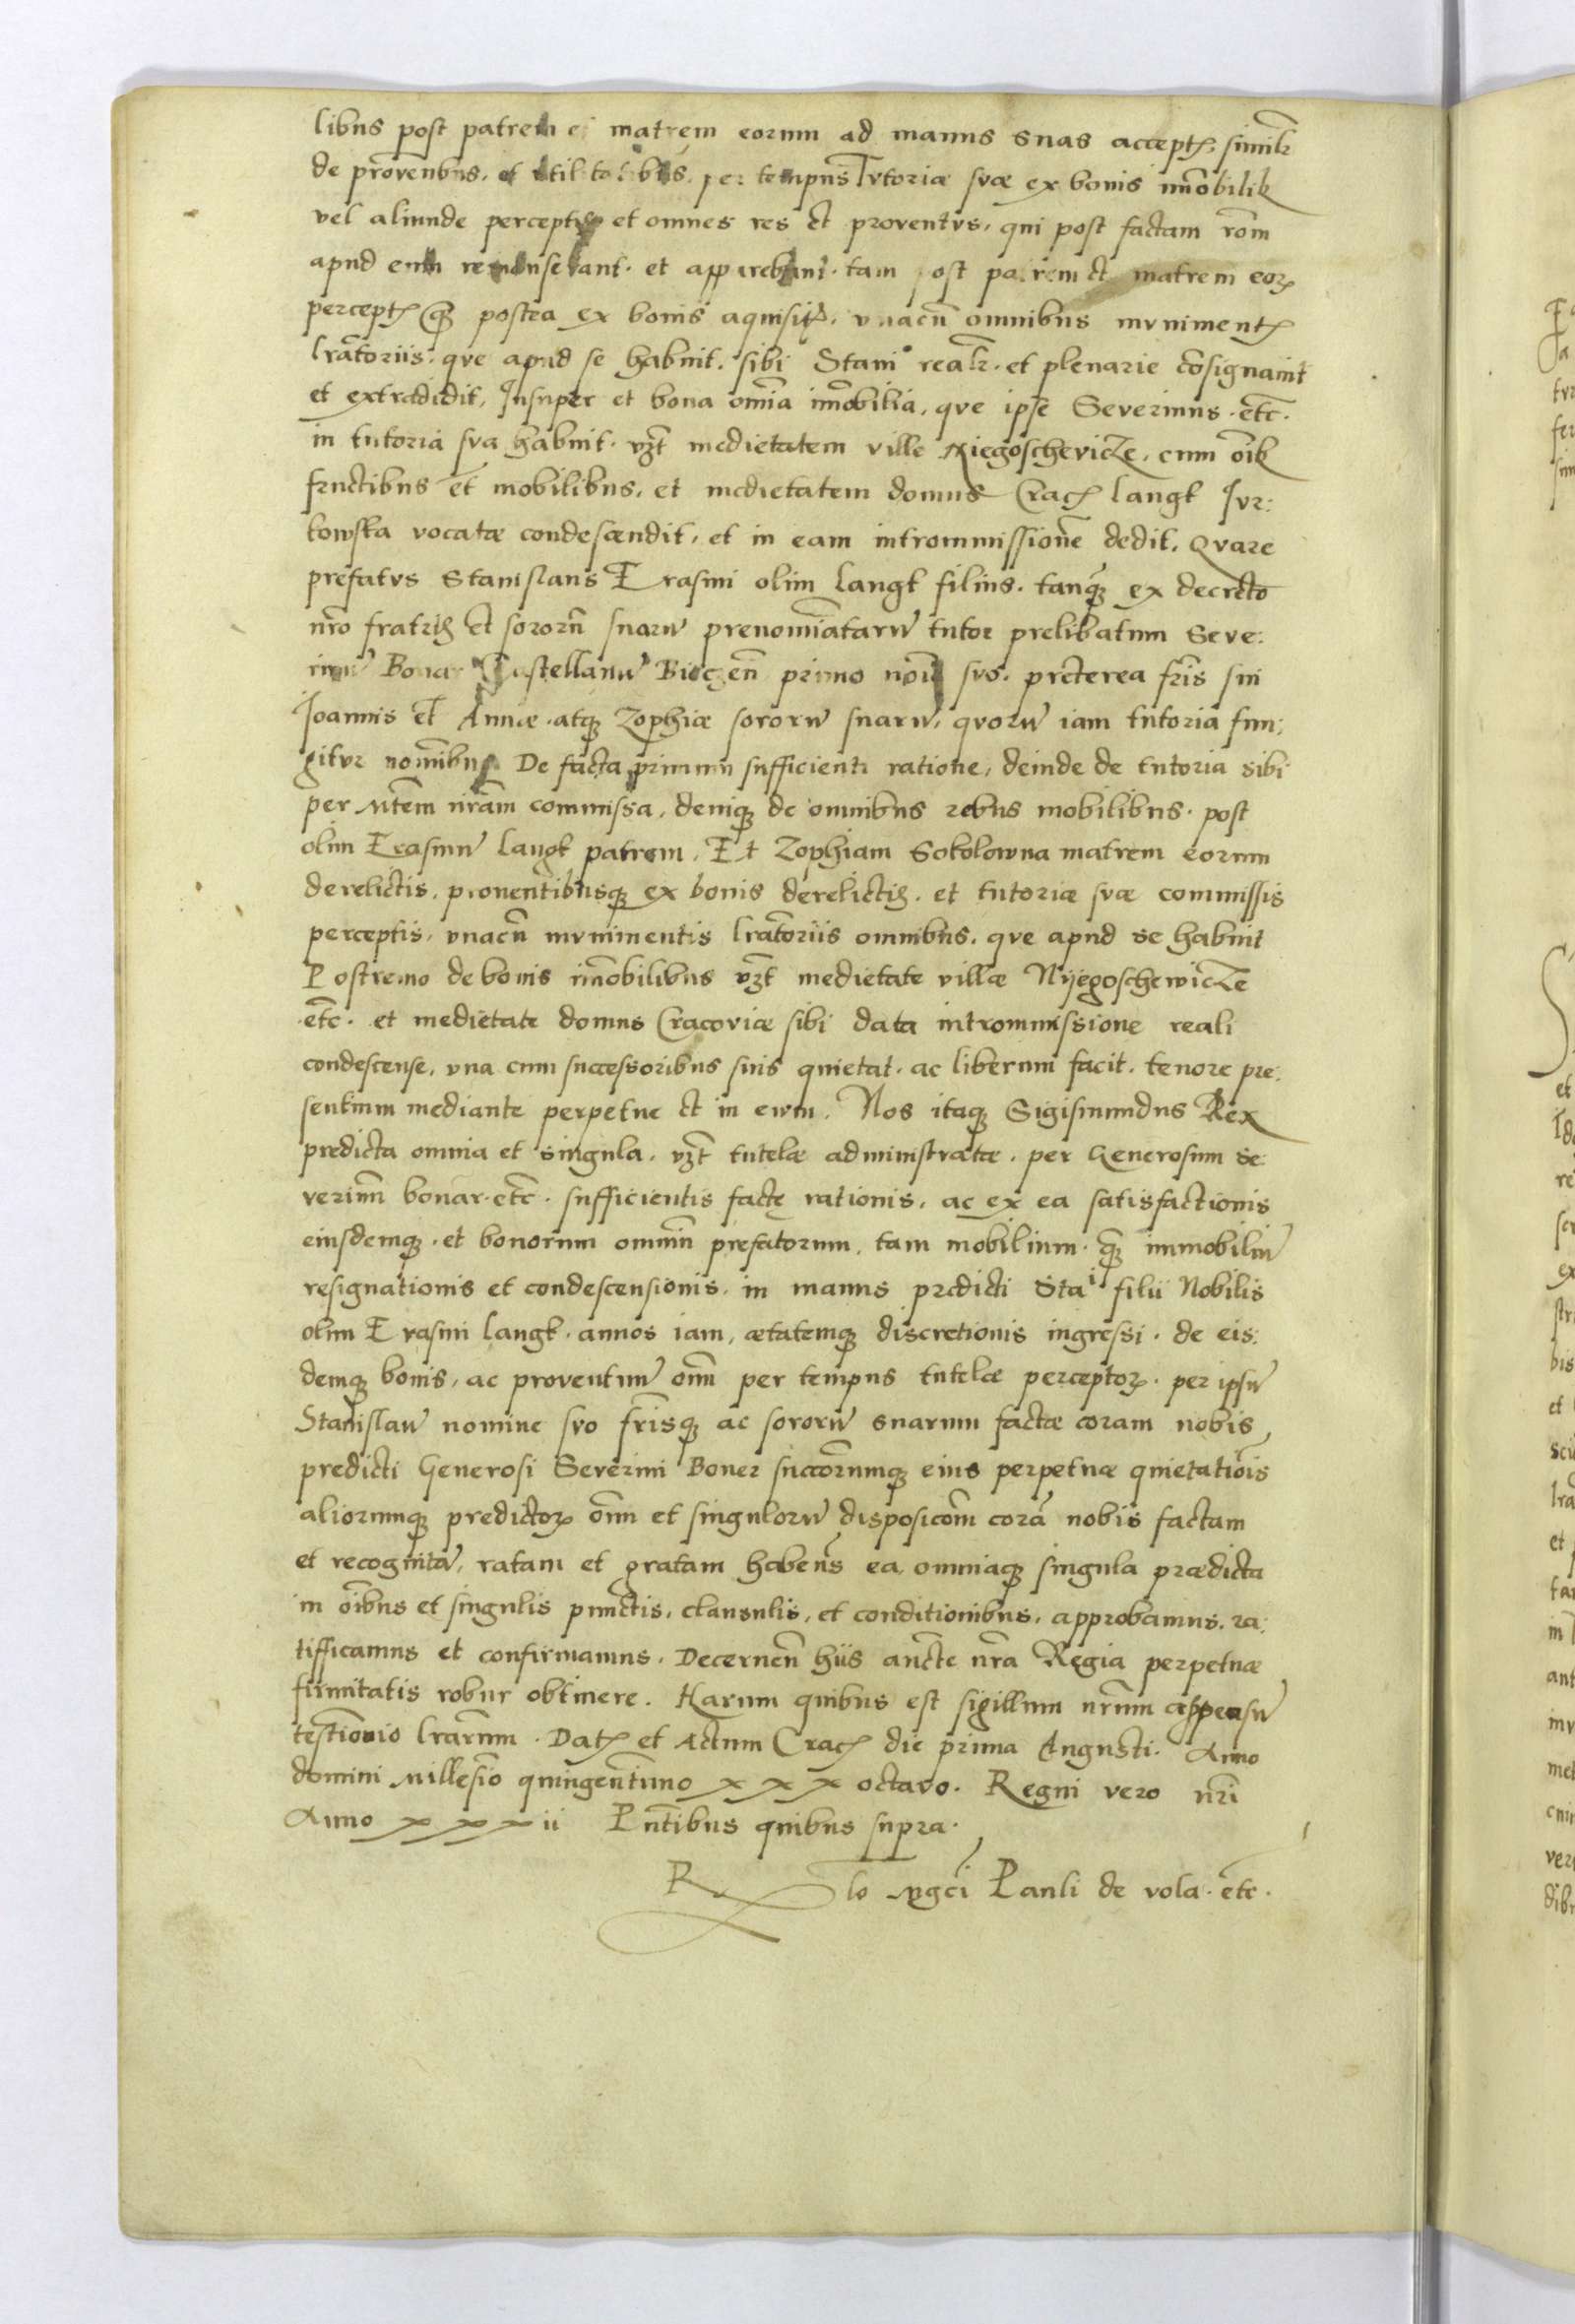 libus post patrem et matrem eorum ad manus suas accept, similr
de provenbus, et utilitatibus, per tempus Tvtoriæ svæ ex bonis imobilib
vel aliunde percept et omnes res et proventvs, qui post factam rõm
apud eum remanserant. et apparebant. tam post patrem et matrem eor
percept q̃ postea ex bonis aquisit, vnacũ omnibus mvniment
lrãtoriis, qve apud se habuit. sibi Stani realr. et plenarie cõsignavit
et extradidit, Insuper et bona omĩa imõbilia, qve ipse Severinus. etc.
in tutoria sva habuit. vzt medietatem ville Niegoschevicze, cum oĩb
fructibus et mobilibus, et medietatem domus Crac Langk Jvr:
kowska vocatæ condescendit, et in eam intromissionẽ dedit, Qvare
prefatvs Stanislaus Erasmi olim Langk filius. tanq̃ ex decreto
nro fratris et sororũ suarũ prenomĩatarũ tutor prelibatum Seve:
rinũ Bonar Castellanũ Biecẽn primo noĩe svo. preterea fris sui
Joannis et Annæ. atq Zophiæ sororũ suarũ, qvorũ iam tutoria fun:
gitvr nomĩbus De facta primum sufficienti ratione, deinde de tutoria sibi
per Mtem nram commissa, deniq de omnibus rebus mobilibus. post
olim Erasmũ Langk patrem, Et Zophiam Sokolowna matrem eorum
derelictis, proventibusq ex bonis derelictis. et tutoriæ svæ commissis
perceptis, vnacũ mvnimentis lrãtoriis omnibus, qve apud se habuit
Postremo de bonis imõbilibus vzt medietate villæ Nyegoschewicze
etc. et medietate domus Cracoviæ sibi data intromissione reali
condescense, vna cum successoribus suis quietat. ac liberum facit. tenore pre:
sentium mediante perpetue et in evm. Nos itaq Sigismundus Rex
predicta omnia et singula, vzt tutelæ administratæ. per Generosum Se
verinũ bonar. etc. sufficientis factę rationis, ac ex ea satisfactionis
eiusdemq. et bonorum omniũ prefatorum, tam mobilium. q̃ immobiliũ
resignationis et condescensionis, in manus predicti Stai filii Nobilis
olim Erasmi Langk. annos iam, ætatemq discretionis ingressi. de eis:
demq bonis, ac proventuũ oĩm per tempus tutelæ perceptor. per ipsũ
Stanislaũ nomine svo frisq ac sororũ suarum factæ coram nobis
predicti Generosi Severini Boner succorumq eius perpetuæ quietatiõis
aliorumq predictor oĩm et singulorũ disposicõm corã nobis factam
et recognitã, ratam et gratam habens ea, omniaq singula prædicta
in oĩbus et singulis punctis, clausulis, et conditionibus, approbamus, ra:
tifficamus et confirmamus. Decernen hiis aucte nra Regia perpetuæ
firmitatis robur obtinere. Harum quibus est sigillum nrum appensũ
testĩonio lrarum. Dat et Actum Crac die prima Augusti. Anno
domini Millesĩo quingentimo xxx octavo. Regni vero nri
Anno xxxii Pntibus quibus supra.
R lo Mgci Pauli de vola. etc.